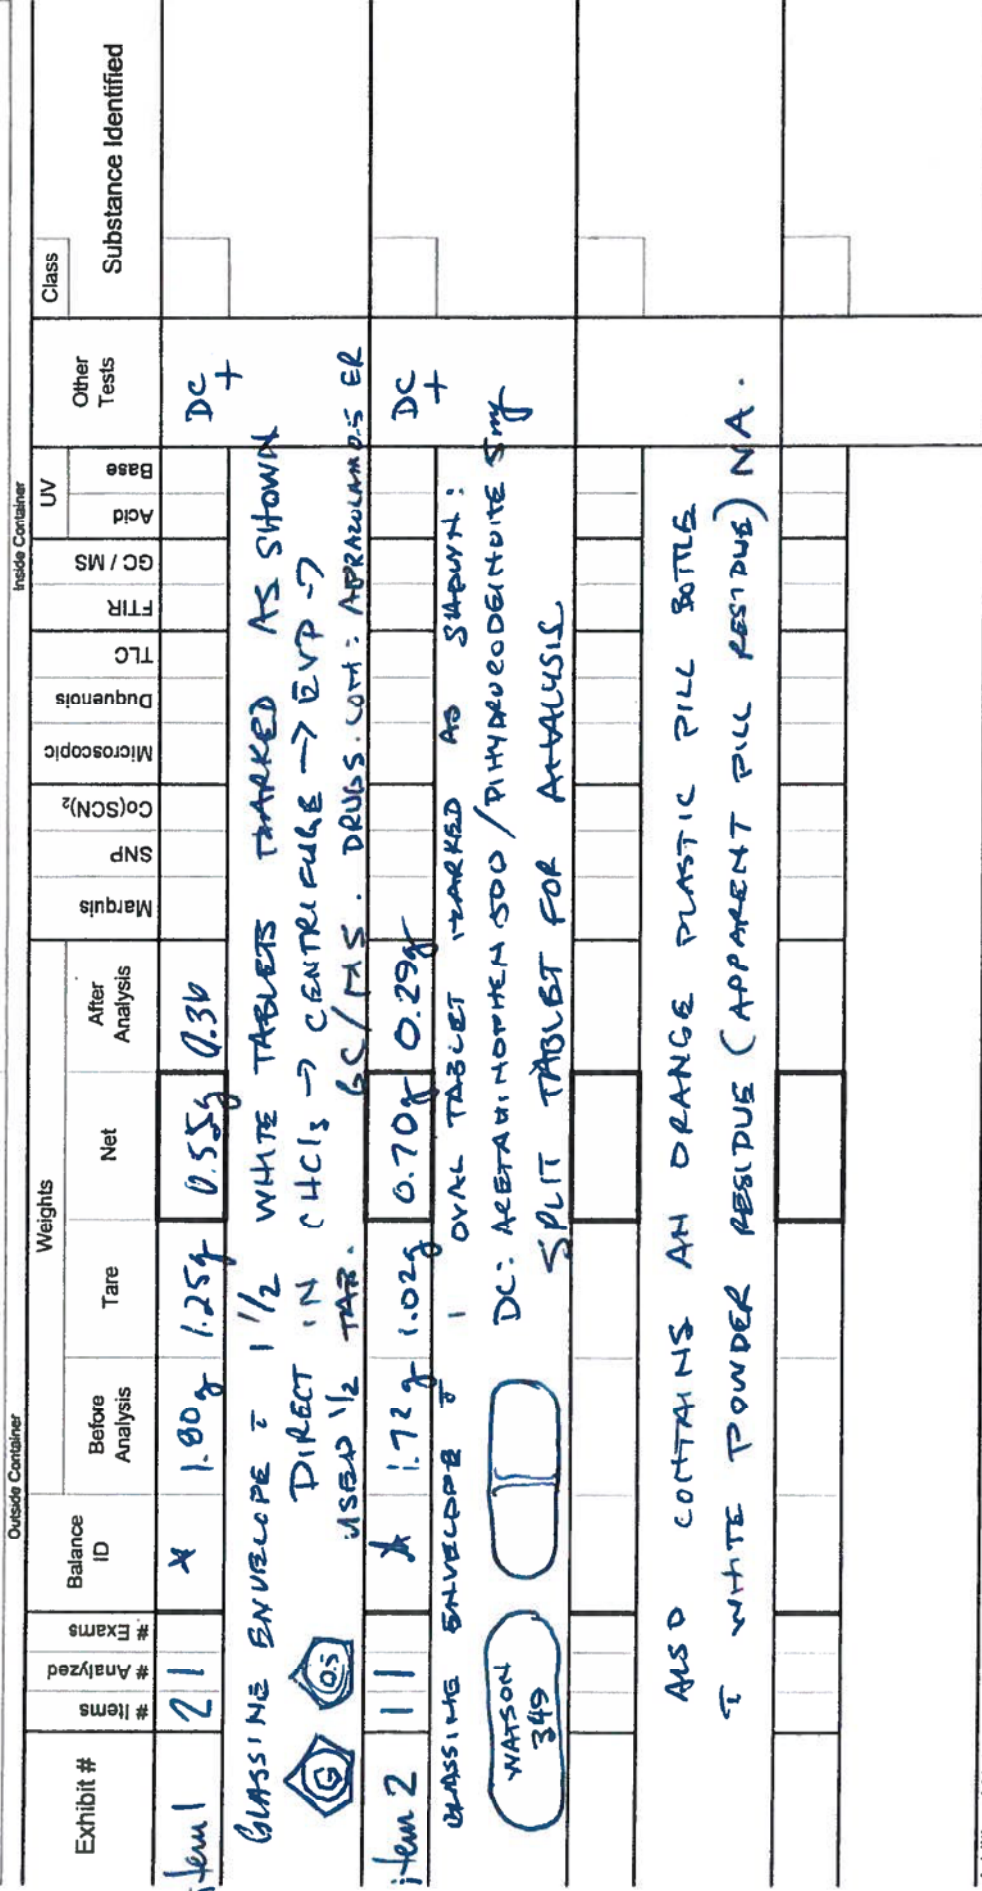 Outside Container
Inside Container
Exhibit #
# Items
# Analyzed
# Exams
Balance ID
Weights
Before Analysis
Tare
Net
After Analysis
Marquis
SNP
Co(SCN)₂
Microscopic
Duquenois
TLC
FTIR
GC / MS
UV
Acid
Base
Other Tests
Class
Substance Identified
item 1 2 1 * 1.80g 1.25g 0.55g 0.36 DC +
GLASSINE ENVELOPE = 1 1/2 WHITE TABLETS MARKED AS SHOWN
G 0.5 DIRECT IN CHCl3 → CENTRIFUGE → EVP →
USED 1/2 TAB. GC/MS. DRUGS.COM: ALPRAZOLAM 0.5 ER
item 2 1 1 * 1.72g 1.02g 0.70g 0.29g DC +
GLASSINE ENVELOPE c̄ 1 OVAL TABLET MARKED AS SHOWN:
WATSON 349
DC: ACETAMINOPHEN 500 / DIHYDROCODEINONE 5mg
SPLIT TABLET FOR ANALYSIS
ALSO CONTAINS AN ORANGE PLASTIC PILL BOTTLE
c̄ WHITE POWDER RESIDUE (APPARENT PILL RESIDUE) NA.